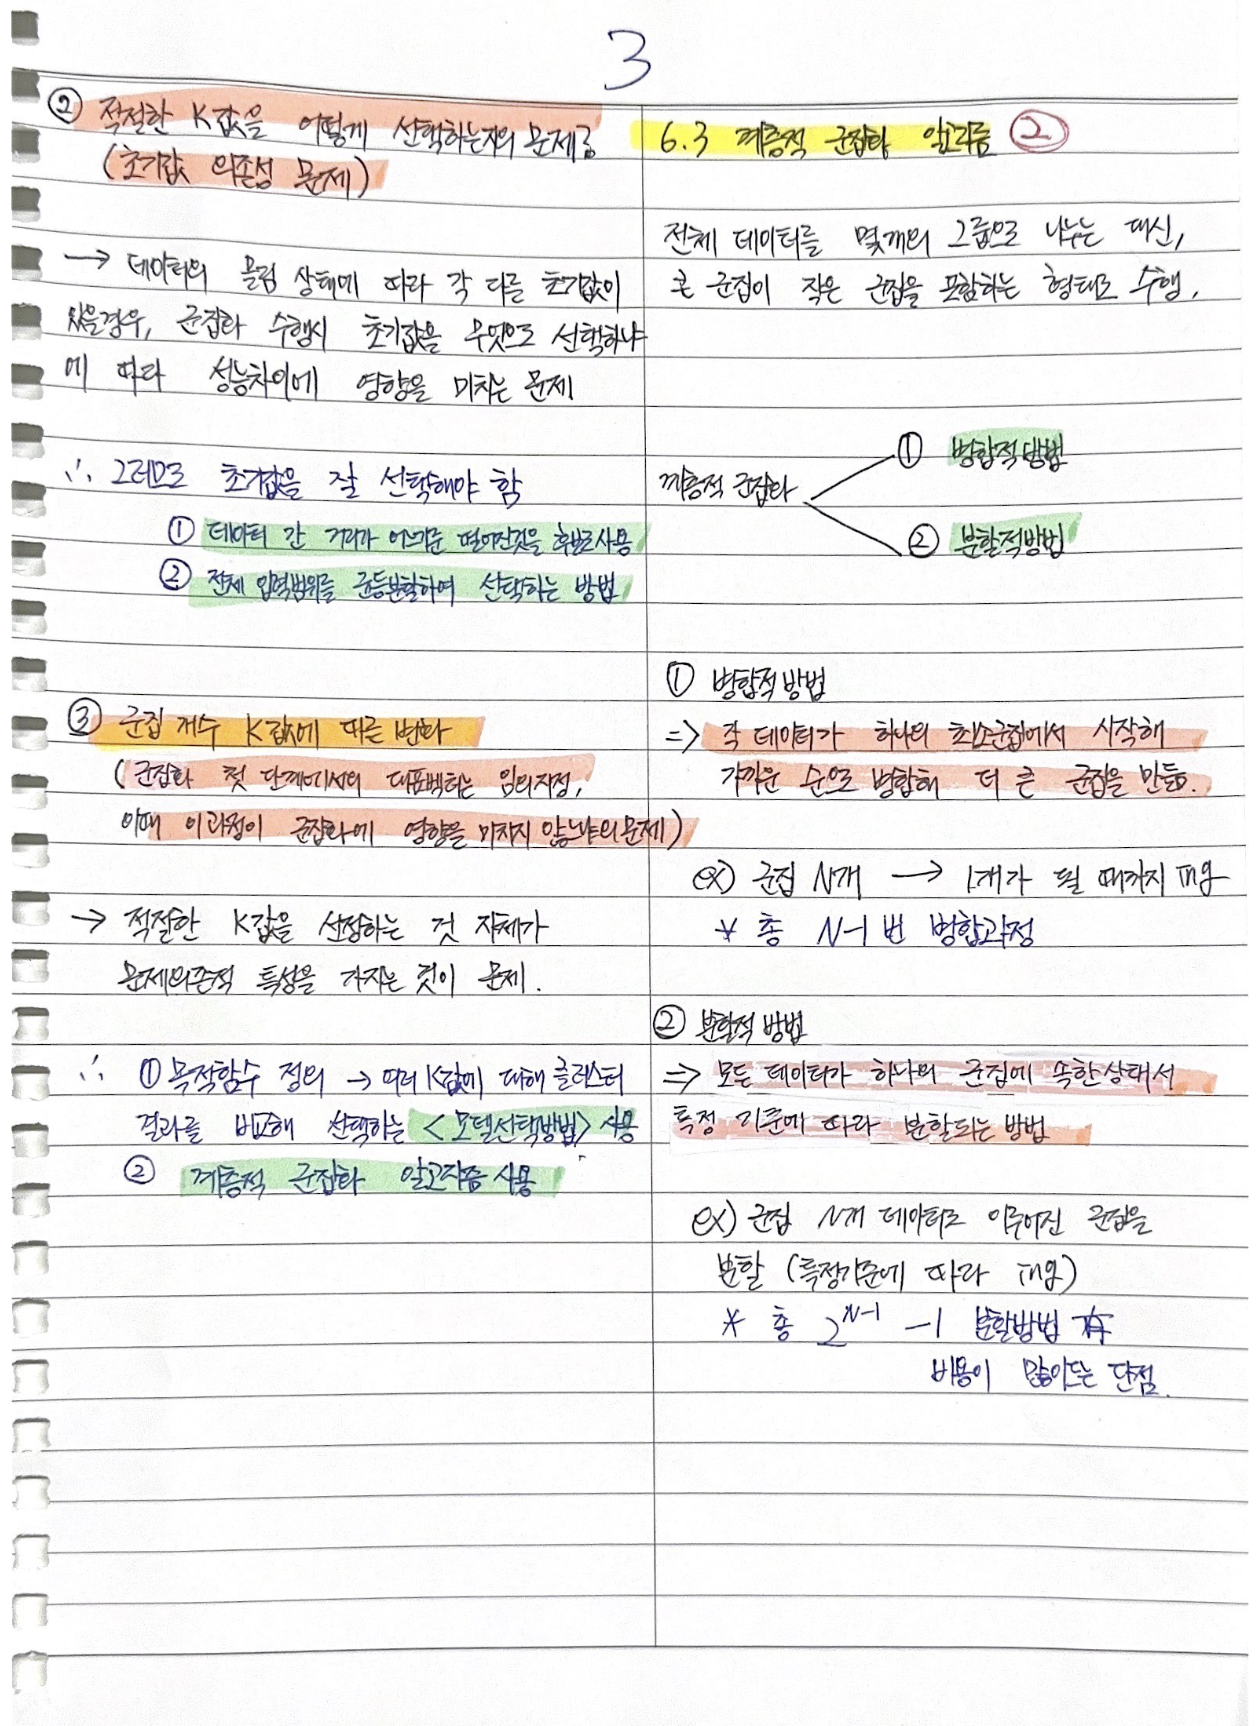 3
② 적절한 K값을 어떻게 선택하는지의 문제
(초기값 의존성 문제)
→ 데이터의 몰림 상태에 따라 각 다른 초기값이
있을경우, 군집화 수행시 초기값을 무엇으로 선택하냐
에 따라 성능차이에 영향을 미치는 문제
∴ 그러므로 초기값을 잘 선택해야 함
① 데이터 간 거리가 어느정도 떨어진것을 후보로 사용
② 전체 입력범위를 균등분할하여 선택하는 방법
③ 군집 개수 K값에 따른 변화
(군집화 첫 단계에서의 대표벡터는 임의지정,
이때 이 과정이 군집화에 영향을 미치지 않느냐의 문제)
→ 적절한 K값을 선정하는 것 자체가
문제의존적 특성을 가지는 것이 문제.
∴ ① 목적함수 정의 → 여러 K값에 대해 클러스터
결과를 비교해 선택하는 <모델선택방법> 사용
② 계층적 군집화 알고리즘 사용
6.3 계층적 군집화 알고리즘 ②
전체 데이터를 몇개의 그룹으로 나누는 대신,
큰 군집이 작은 군집을 포함하는 형태로 수행.
계층적 군집화
① 병합적방법
② 분할적방법
① 병합적방법
⇒ 각 데이터가 하나의 최소군집에서 시작해
가까운 순으로 병합해 더 큰 군집을 만듦.
ex) 군집 N개 → 1개가 될 때까지 ing
* 총 N-1 번 병합과정
② 분할적 방법
⇒ 모든 데이터가 하나의 군집에 속한상태서
특정 기준에 따라 분할되는 방법
ex) 군집 N개 데이터로 이루어진 군집을
분할 (특정기준에 따라 ing)
* 총 2^{N-1} -1 분할방법 有
비용이 많이드는 단점.